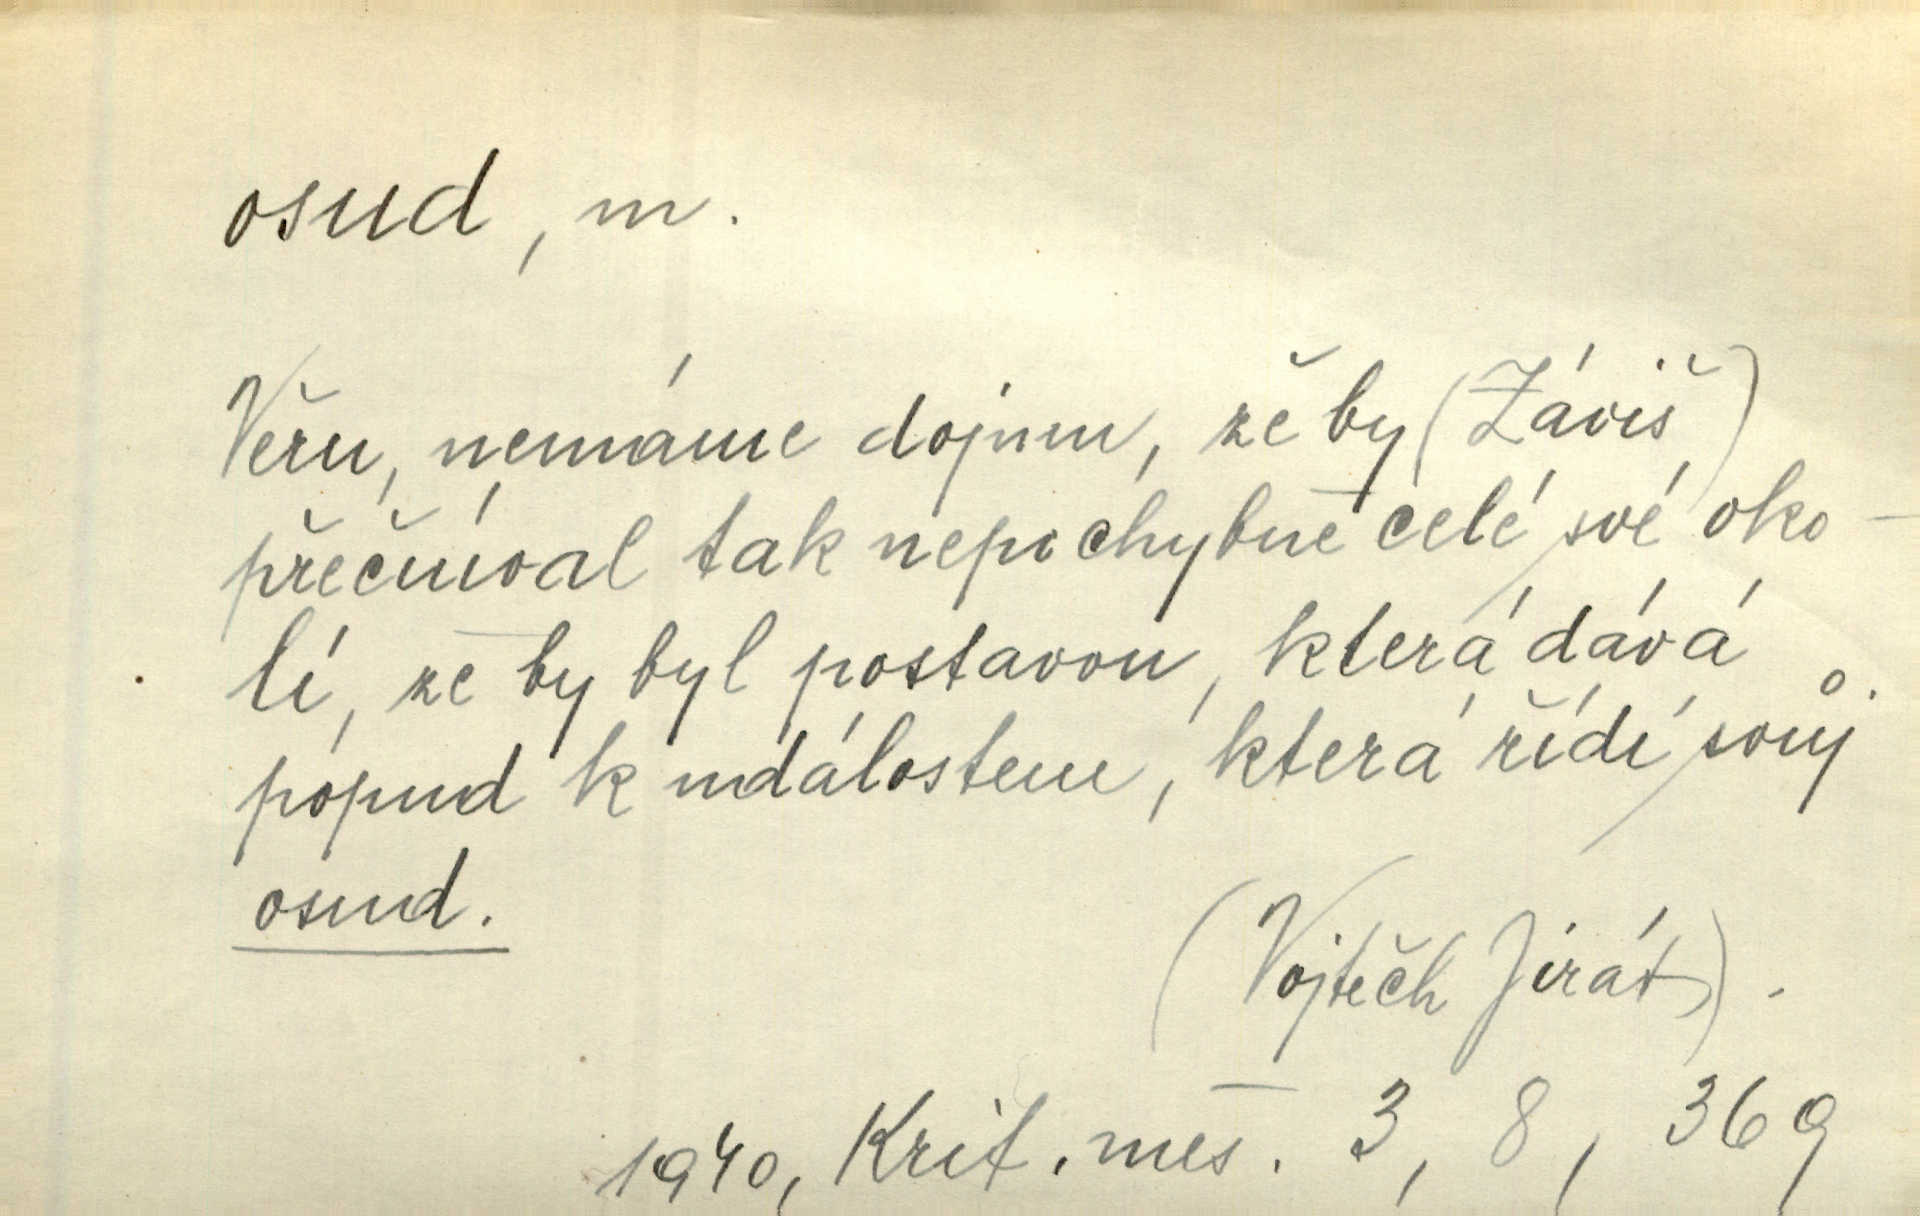 osud, m.
Věru, nemáme dojmu, že by (Záviš)
přečníval tak nepochybně celé své oko-
lí, že by byl postavou, která dává
popud k událostem, která řídí svůj
osud.
(Vojtěch Jirát).
1940, Krit. měs. 3, 8, 369